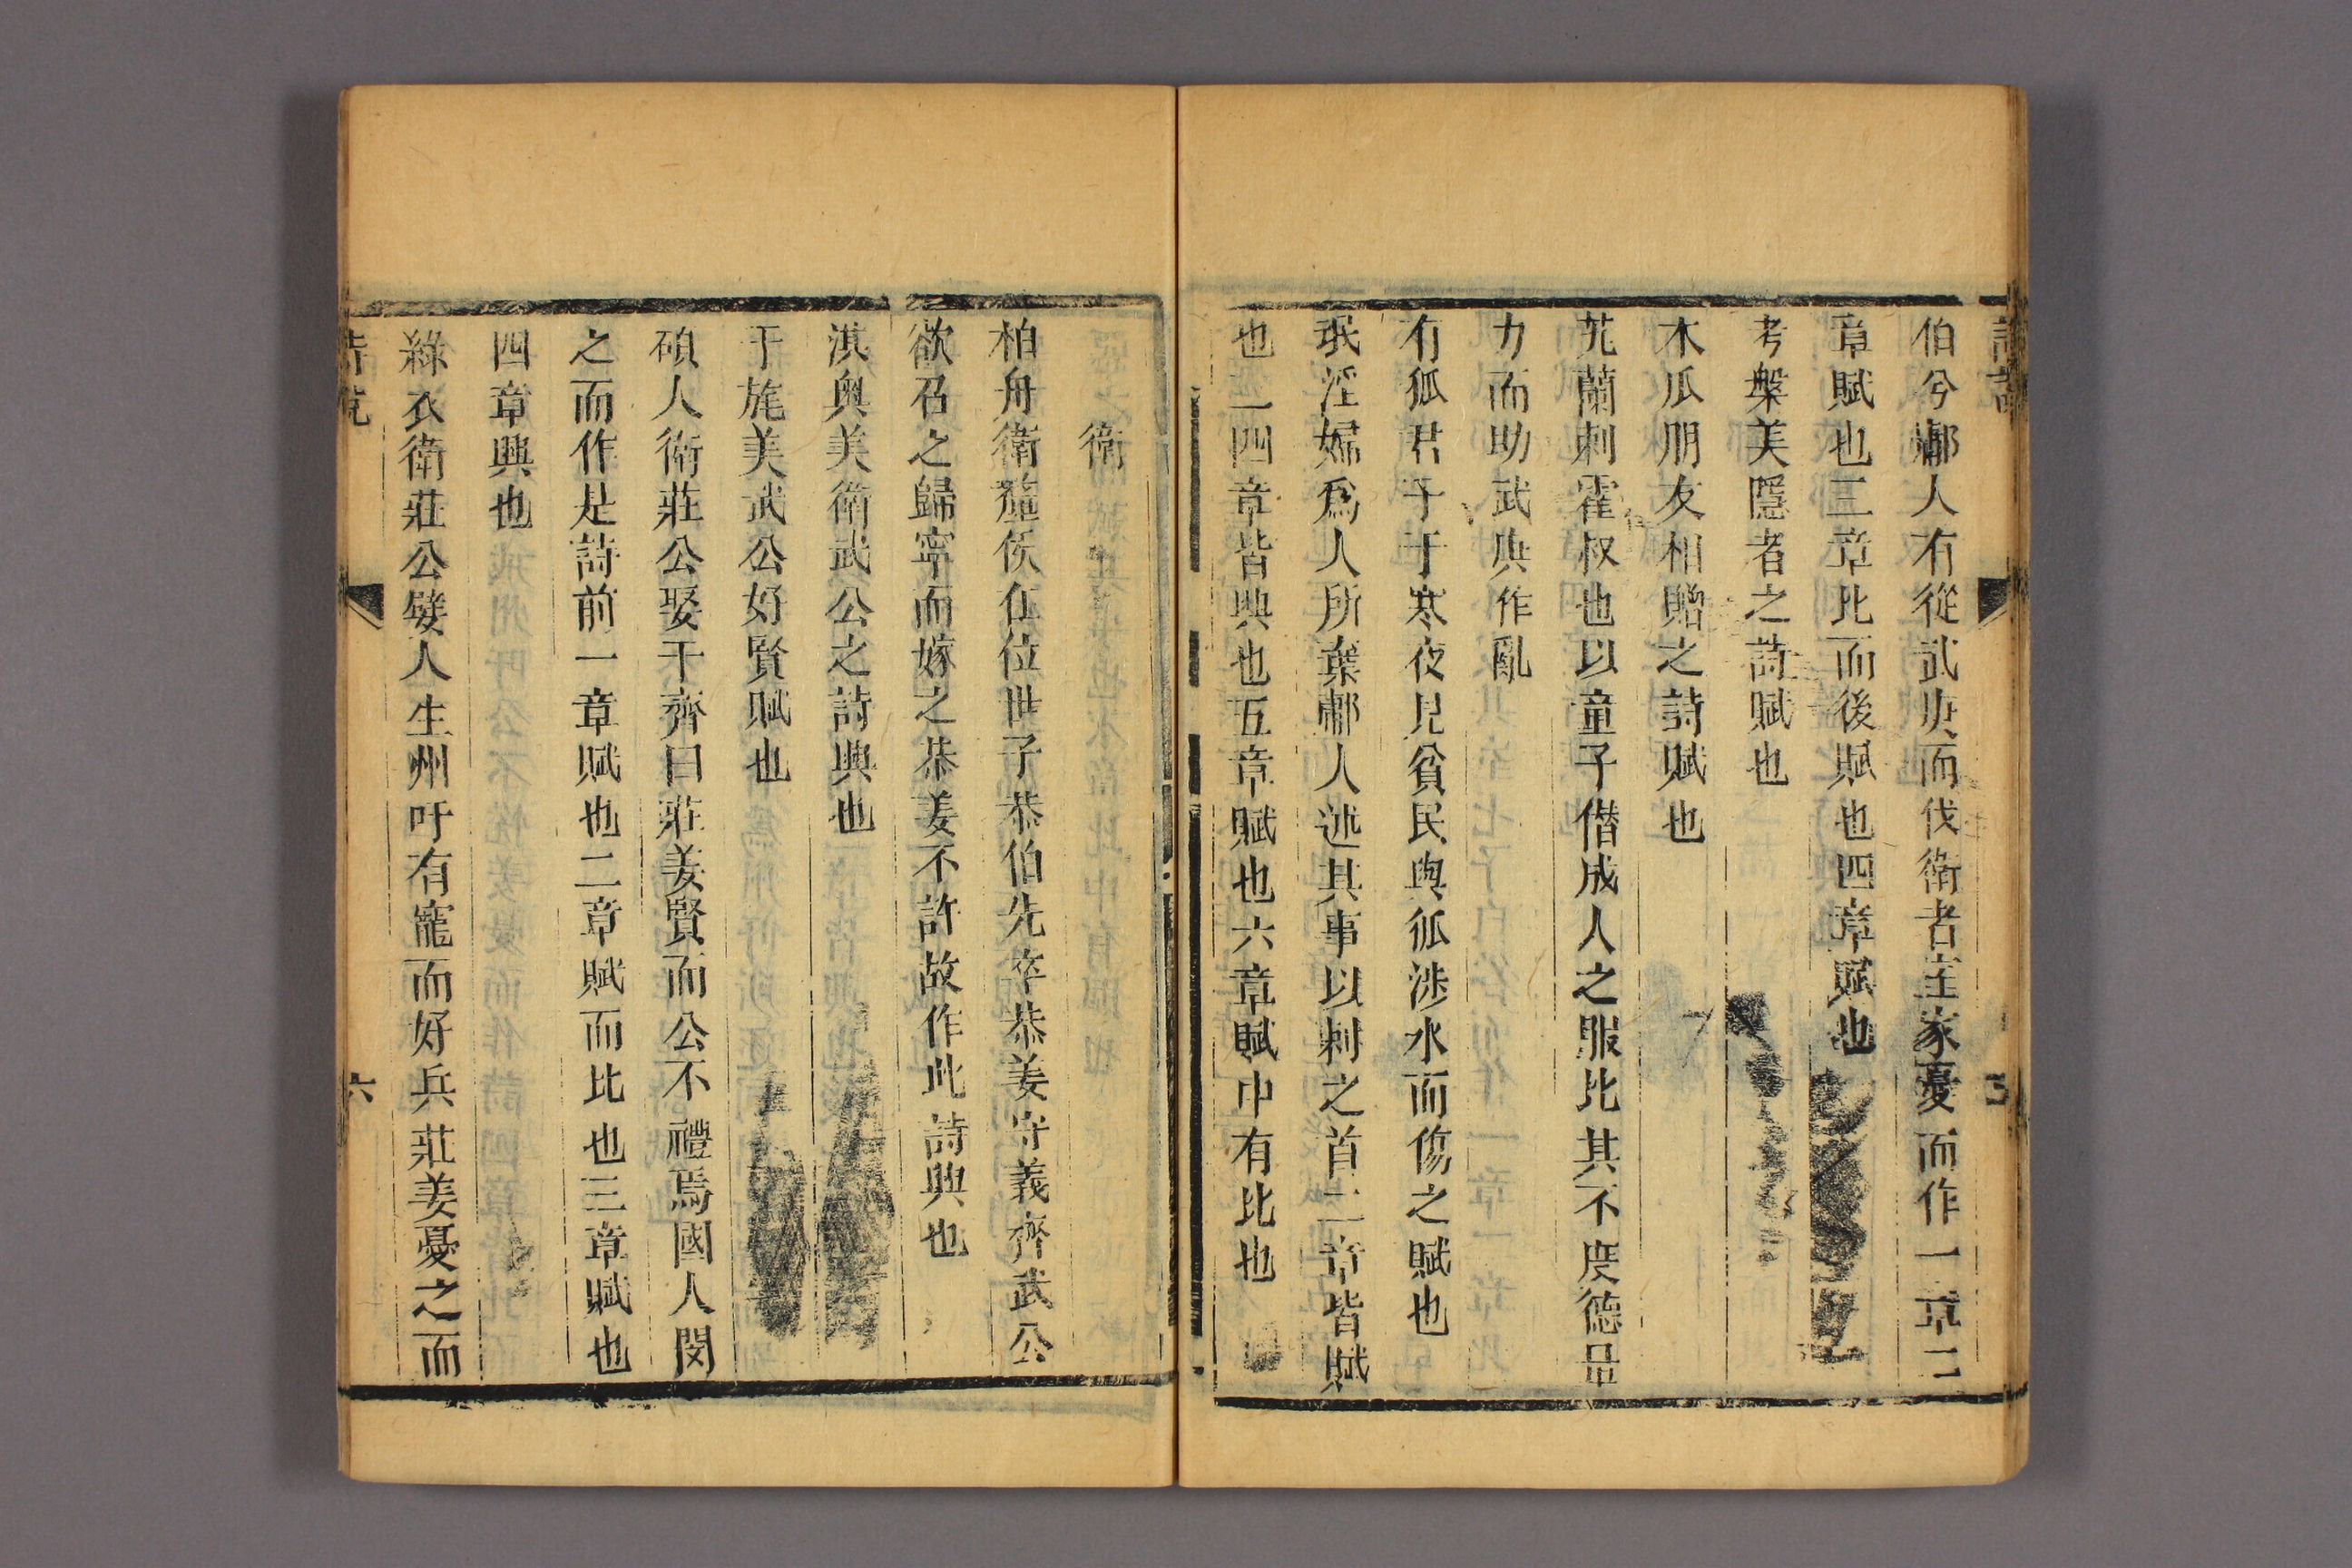 伯兮鄘人有從武庚而伐衛者室家憂而作一章二
章賦也三章比而後賦也四章賦也
考槃美隱者之詩賦也
木瓜朋友相贈之詩賦也
芄蘭刺霍叔也以童子僭成人之服比其不度德量
力而助武庚作亂
有狐君子于寒夜見貧民與狐涉水而傷之賦也
氓淫婦爲人所棄鄘人述其事以刺之首二章皆賦
也三四章皆興也五章賦也六章賦中有比也
衛
柏舟衛釐侯在位世子恭伯先卒恭姜守義齊武公
欲召之歸寧而嫁之恭姜不許故作此詩興也
淇奧美衛武公之詩興也
干旄美武公好賢賦也
碩人衛莊公娶于齊曰莊姜賢而公不禮焉國人閔
之而作是詩前一章賦也二章賦而比也三章賦也
四章興也
綠衣衛莊公嬖人生州吁有寵而好兵莊姜憂之而
詩說
六